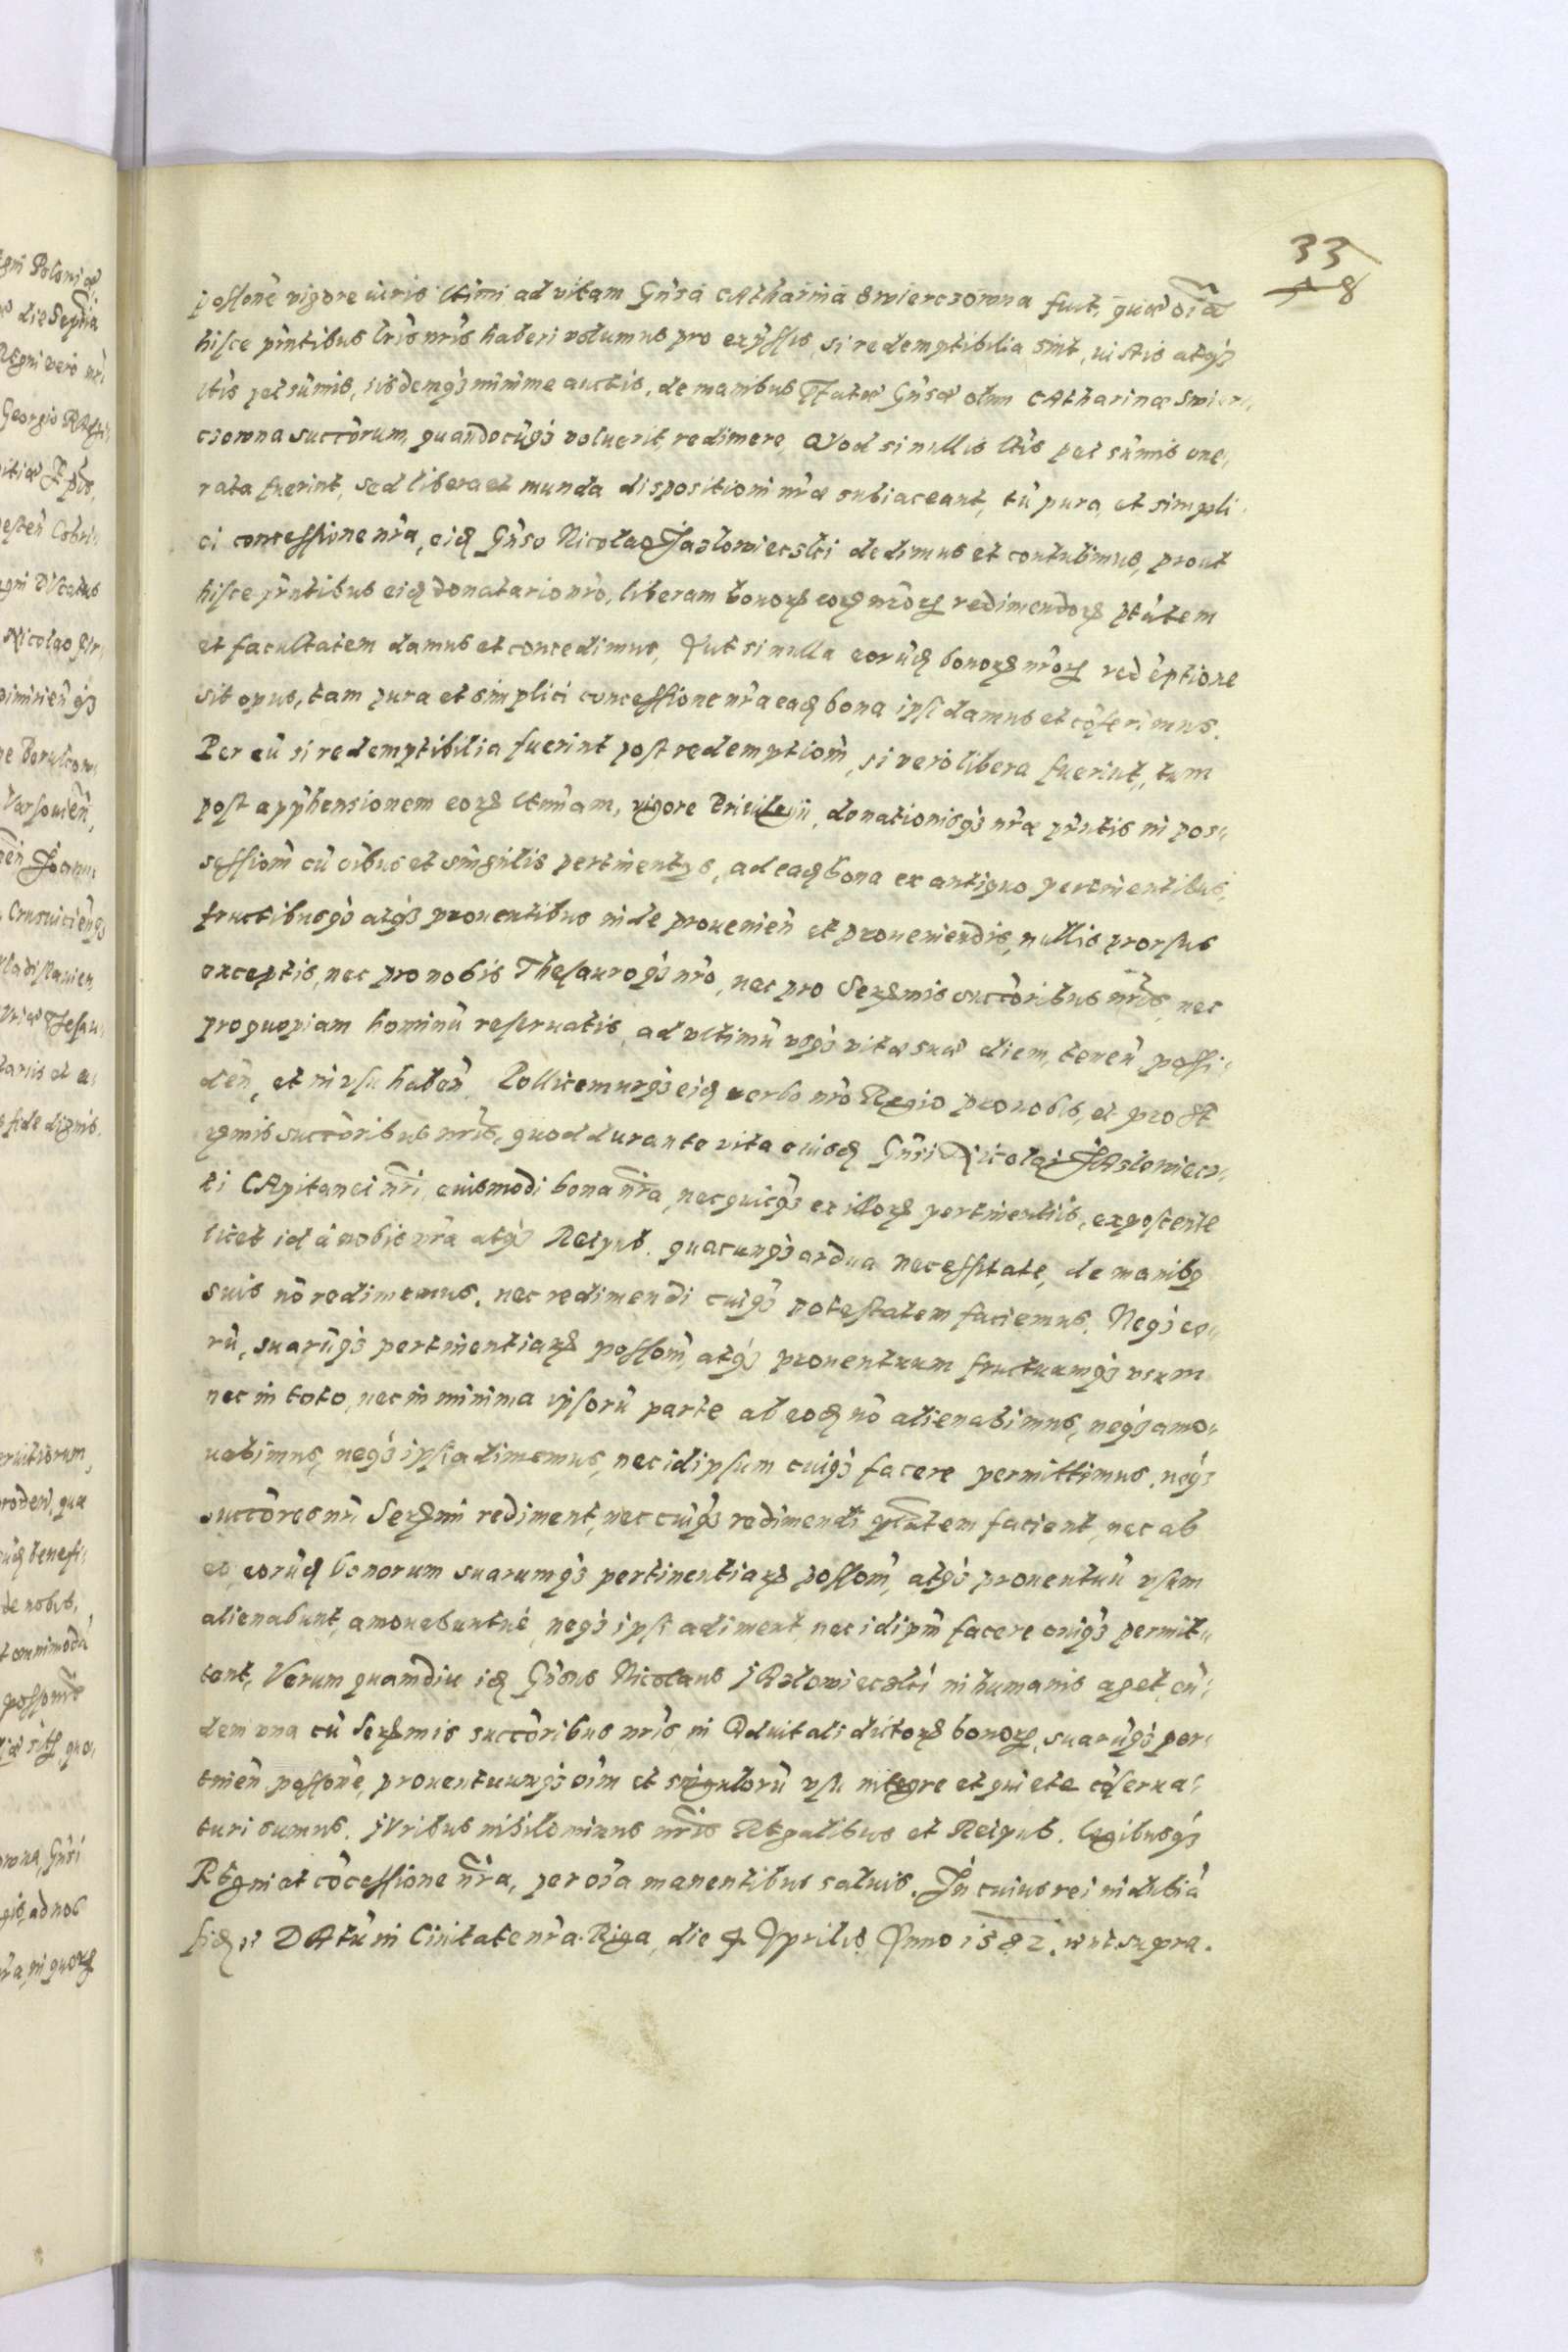 33
18
possone vigore iuris ltimi ad vitam Gnsa CAtharina Swierczowna fuit, quæ oia
hisce pntibus lris nris haberi volumus pro expssis, si redemptibilia sint, iustis atq
ltis pec sumis, iisdemq minime auctis, de manibus Pfatæ Gnsæ olim CAtharinæ Swier,
czowna succorum, quandocuq voluerit, redimere, Quod si nullis ltis pec sumis one,
rata fuerint, sed libera et munda dispositioni nræ subiaceant, tu pura et simpli,
ci concessione nra, eid Gnso Nicolao Jazlowiecski dedimus et contulimus, prout
hisce pntibus eid donatario nro, liberam bonor eord nror redimendor ptatem
et facultatem damus et concedimus, Aut si nulla eorud bonor nror redeptione
sit opus, tam pura et simplici concessione nra ead bona ipsi damus et coferimus.
Per eu si redemptibilia fuerint post redemptiom, si vero libera fuerint, tum
post apphensionem eor ltimam, vigore Priuilegii, donationisq nræ pntis in pos,
sessiom cu oibus et singulis pertinentys, ad ead bona ex antiquo pertinentibus,
fructibusq atq prouentibus inde prouenien et proueniendis, nullis prorsus
exceptis, nec pro nobis Thesauroq nro, nec pro Sermis succoribus nris, nec
pro quopiam hominu reseruatis, ad vltimu vsq vitæ suæ diem, tenen possi,
den, et in vsu haben. Pollicemurq eid verbo nro Regio pro nobis, et pro Se
rmis succoribus nris, quod durante vita eiusd Gnsi Nicolai JAzlowiecz,
ki CApitanei nri, euismodi bona nra, nec quicq ex illor pertinentiis, exposcente
licet id à nobis nra atq Reipub. quacunq ardua necessitate, de manib
suis no redimemus, nec redimendi cuiq potestatem faciemus. Neq eo,
ru, suaruq pertinentiar possom, atq prouentuum fructuumq vsum
nec in toto, nec in minima ipsoru parte ab eod no alienabimus, neq amo,
uebimus, neq ipsi adimemus, nec id ipsum cuiq facere permittimus, neq
succores nri Sermi rediment, nec cuiq redimendi ptatem facient, nec ab
eo, eorud bonorum suarumq pertinentiar possom, atq prouentuu vsum
alienabunt, amouebuntue, neq ipsi adiment, nec id ipm facere cuiq permit,
tent, Verum quamdiu id Gnsus Nicolaus JAzlowieczki in humanis aget, eu,
dem vna cu Sermis succoribus nris, in Aduitali dictor bonor, suaruq per,
tinen, possone, prouentuumq oim et singuloru vsu integre et quiete coserua,
turi sumus. JVribus nihilominus nris REgalibus et Reipub. legibusq
REgni et cocessione nra, per oia manentibus saluis. In cuius rei indubia
fid et DAtu in Ciuitate nra Riga, die 4 Aprilis, Anno 1582. vt supra.